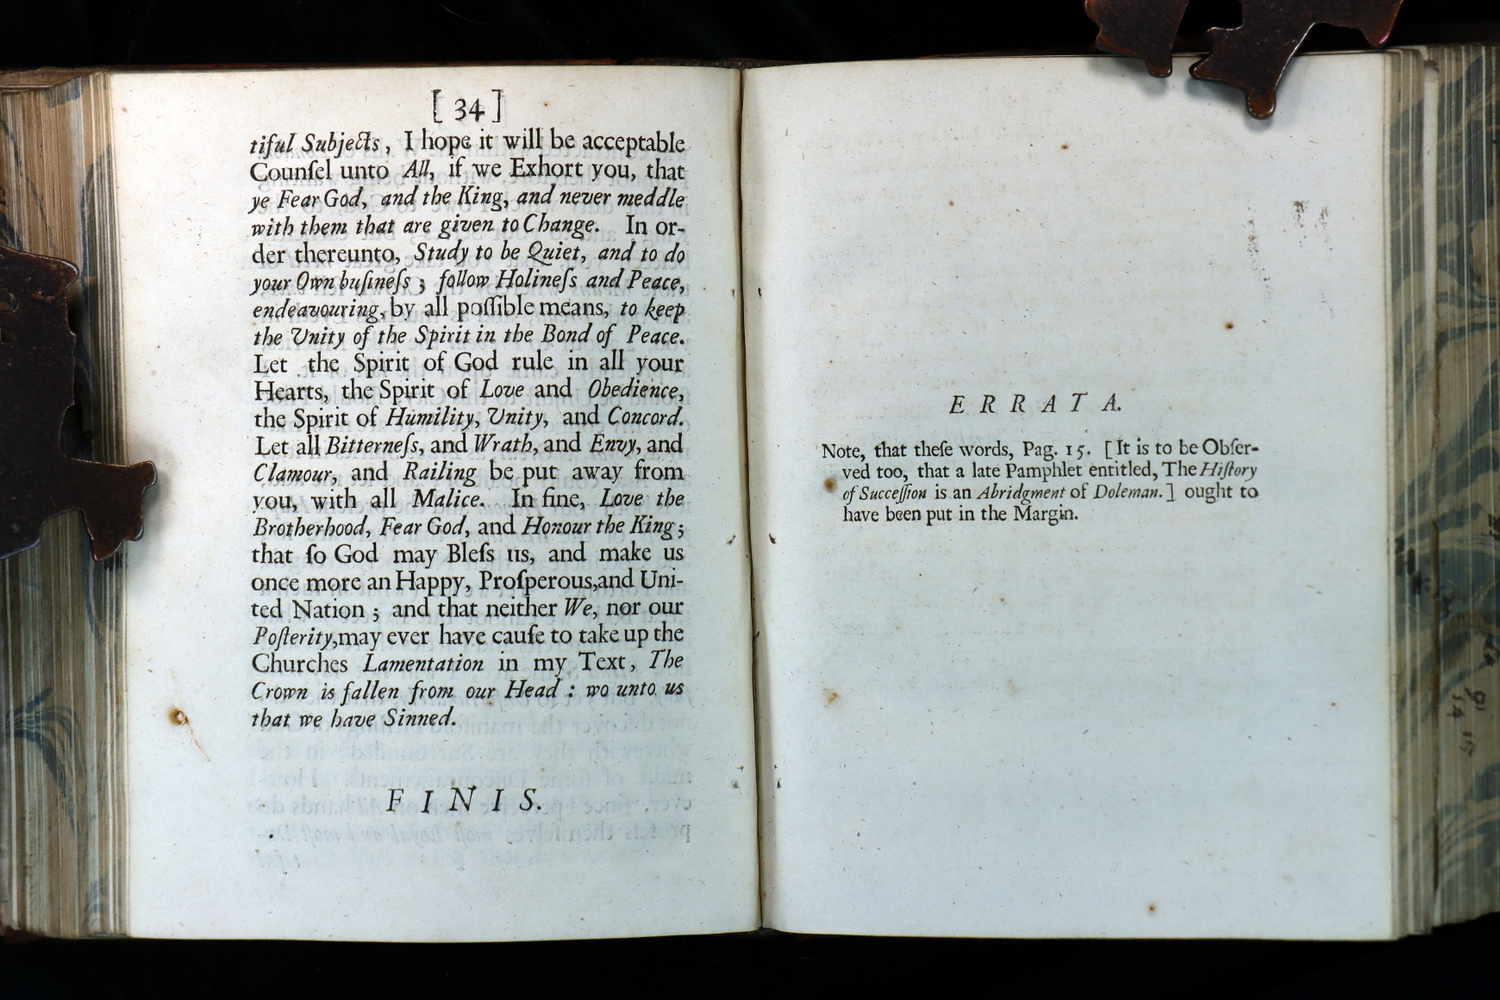 [ 34 ]
tiful Subjects, I hope it will be acceptable
Counſel unto All, if we Exhort you, that
ye Fear God, and the King, and never meddle
with them that are given to Change. In or-
der thereunto, Study to be Quiet, and to do
your Own buſineſs ; follow Holineſs and Peace,
endeavouring, by all poſſible means, to keep
the Unity of the Spirit in the Bond of Peace.
Let the Spirit of God rule in all your
Hearts, the Spirit of Love and Obedience,
the Spirit of Humility, Unity, and Concord.
Let all Bitterneſs, and Wrath, and Envy, and
Clamour, and Railing be put away from
you, with all Malice. In fine, Love the
Brotherhood, Fear God, and Honour the King;
that ſo God may Bleſs us, and make us
once more an Happy, Proſperous,and Uni-
ted Nation ; and that neither We, nor our
Poſterity,may ever have cauſe to take up the
Churches Lamentation in my Text, The
Crown is fallen from our Head : wo unto us
that we have Sinned.
FINIS.
ERRATA.
Note, that theſe words, Pag. 15. [ It is to be Obſer-
ved too, that a late Pamphlet entitled, The Hiſtory
of Succeſſion is an Abridgment of Doleman. ] ought to
have been put in the Margin.